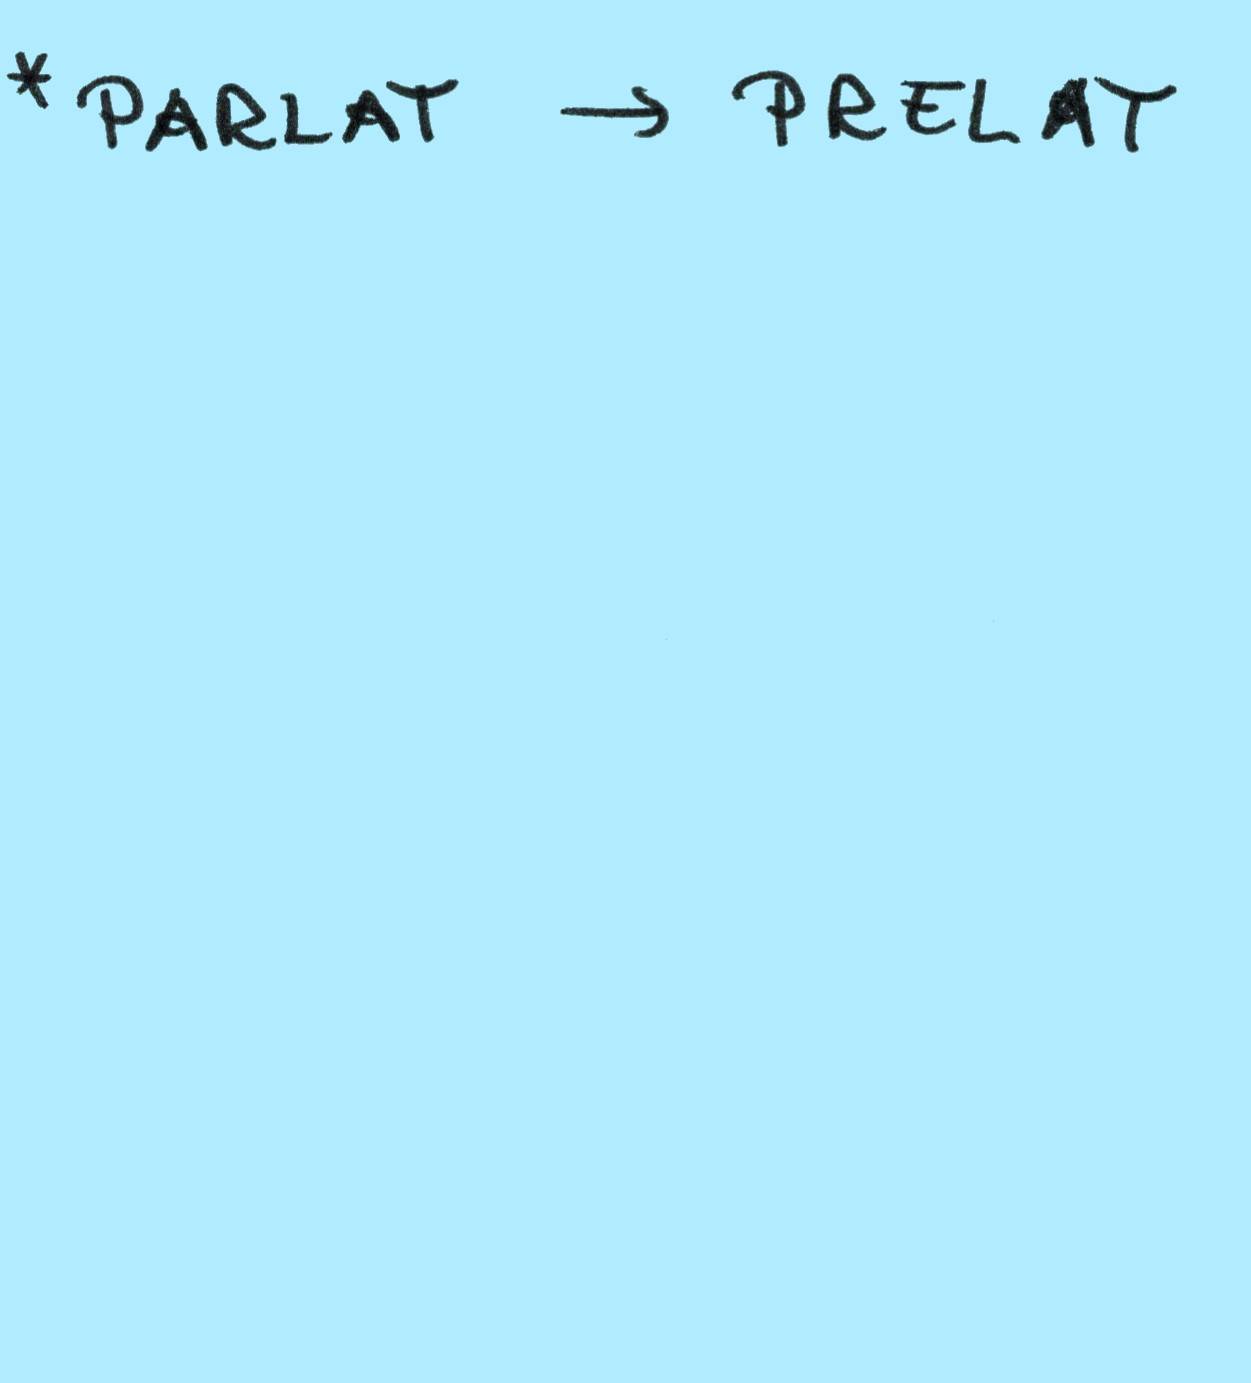 * PARLAT → PRELAT